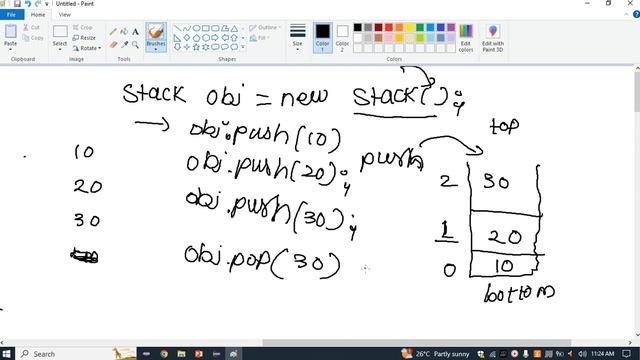 Untitled - Paint
File Home View
Paste
Cut
Copy
Clipboard
Select
Crop
Resize
Rotate
Image
Tools
Brushes
Shapes
Outline
Fill
Size
Color 1
Color 2
Colors
Edit colors
Edit with Paint 3D
Stack obj = new Stack();
top
→ obj.push(10)
10
obj.push(20); push
20
2 30
obj.push(30);
30
1 20
obj.pop(30)
0 10
bottom
Search
26°C Partly sunny
ENG 11:24 AM